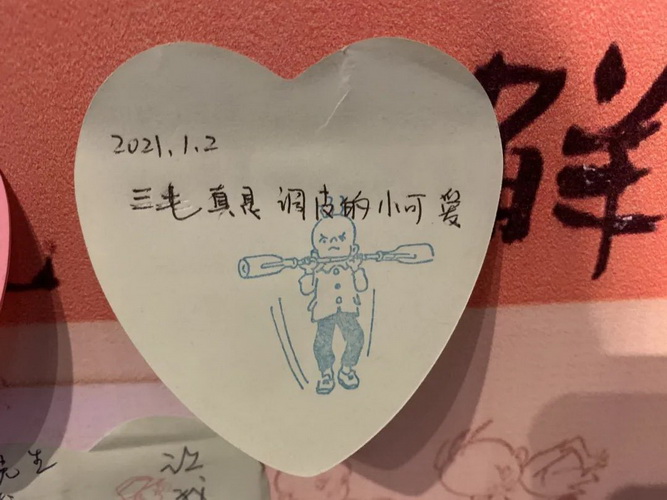 2021.1.2
三毛真是调皮的小可爱
鲜
先生